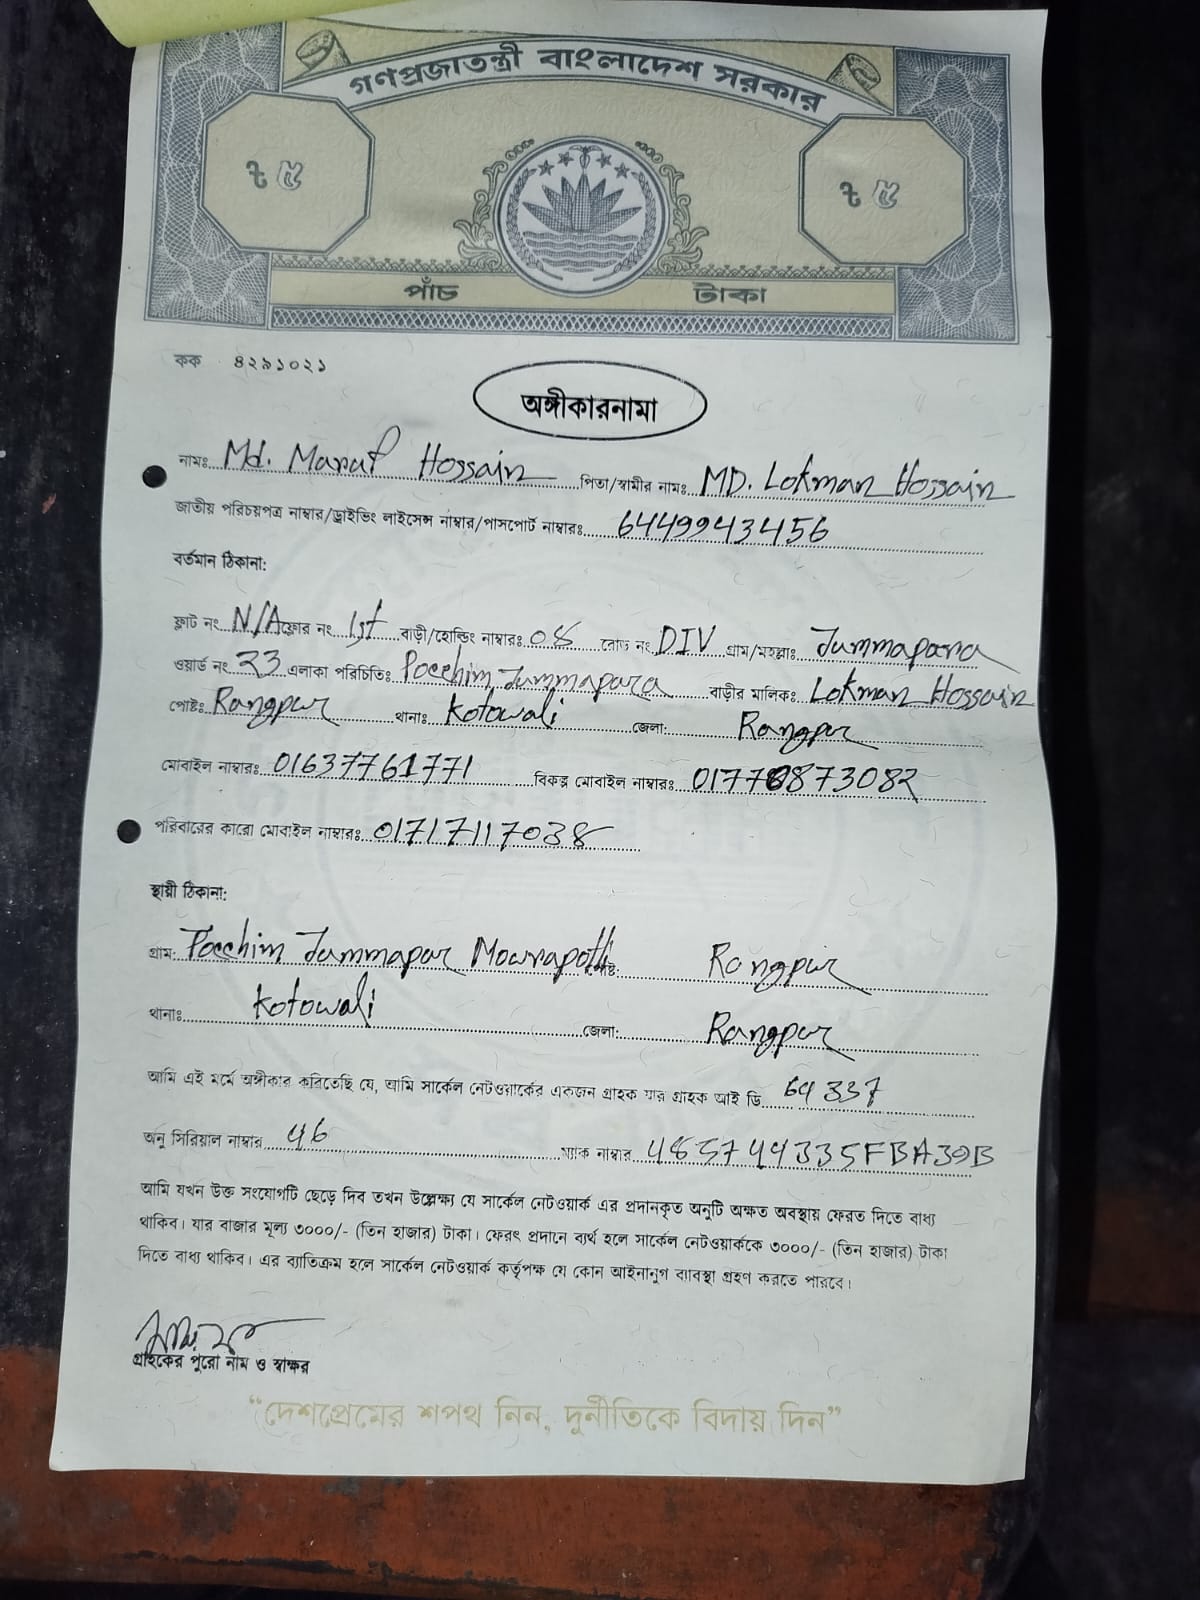 গণপ্রজাতন্ত্রী বাংলাদেশ সরকার
৳ ৫ ৳ ৫
পাঁচ টাকা
কক ৪২৯১০২১
অঙ্গীকারনামা
নামঃ Md. Maruf Hossain পিতা/স্বামীর নামঃ MD. Lokman Hossain
জাতীয় পরিচয়পত্র নাম্বার/ড্রাইভিং লাইসেন্স নাম্বার/পাসপোর্ট নাম্বারঃ 6449943456
বর্তমান ঠিকানা:
ফ্লাট নং N/A ফ্লোর নং 1st বাড়ী/হোল্ডিং নাম্বারঃ 08 রোড নং DIV গ্রাম/মহল্লাঃ Jummapara
ওয়ার্ড নং 23 এলাকা পরিচিতিঃ Pocchim Jummapara বাড়ীর মালিক: Lokman Hossain
পোষ্টঃ Rangpur থানাঃ Kotowali জেলা: Rangpur
মোবাইল নাম্বারঃ 01637761771 বিকল্প মোবাইল নাম্বারঃ 01770873082
পরিবারের কারো মোবাইল নাম্বারঃ 01717117038
স্থায়ী ঠিকানা:
গ্রাম: Pocchim Jummapar Rangpur
থানাঃ Kotowali জেলা: Rangpur
আমি এই মর্মে অঙ্গীকার করিতেছি যে, আমি সার্কেল নেটওয়ার্কের একজন গ্রাহক যার গ্রাহক আই ডি 64337
অনু সিরিয়াল নাম্বার 46 ম্যাক নাম্বার 485744335FBA39B
আমি যখন উক্ত সংযোগটি ছেড়ে দিব তখন উল্লেক্ষ্য যে সার্কেল নেটওয়ার্ক এর প্রদানকৃত অনুটি অক্ষত অবস্থায় ফেরত দিতে বাধ্য
থাকিব। যার বাজার মূল্য ৩০০০/- (তিন হাজার) টাকা। ফেরৎ প্রদানে ব্যর্থ হলে সার্কেল নেটওয়ার্ককে ৩০০০/- (তিন হাজার) টাকা
দিতে বাধ্য থাকিব। এর ব্যতিক্রম হলে সার্কেল নেটওয়ার্ক কর্তৃপক্ষ যে কোন আইনানুগ ব্যাবস্থা গ্রহণ করতে পারবে।
গ্রাহকের পুরো নাম ও স্বাক্ষর
“দেশপ্রেমের শপথ নিন, দুর্নীতিকে বিদায় দিন”